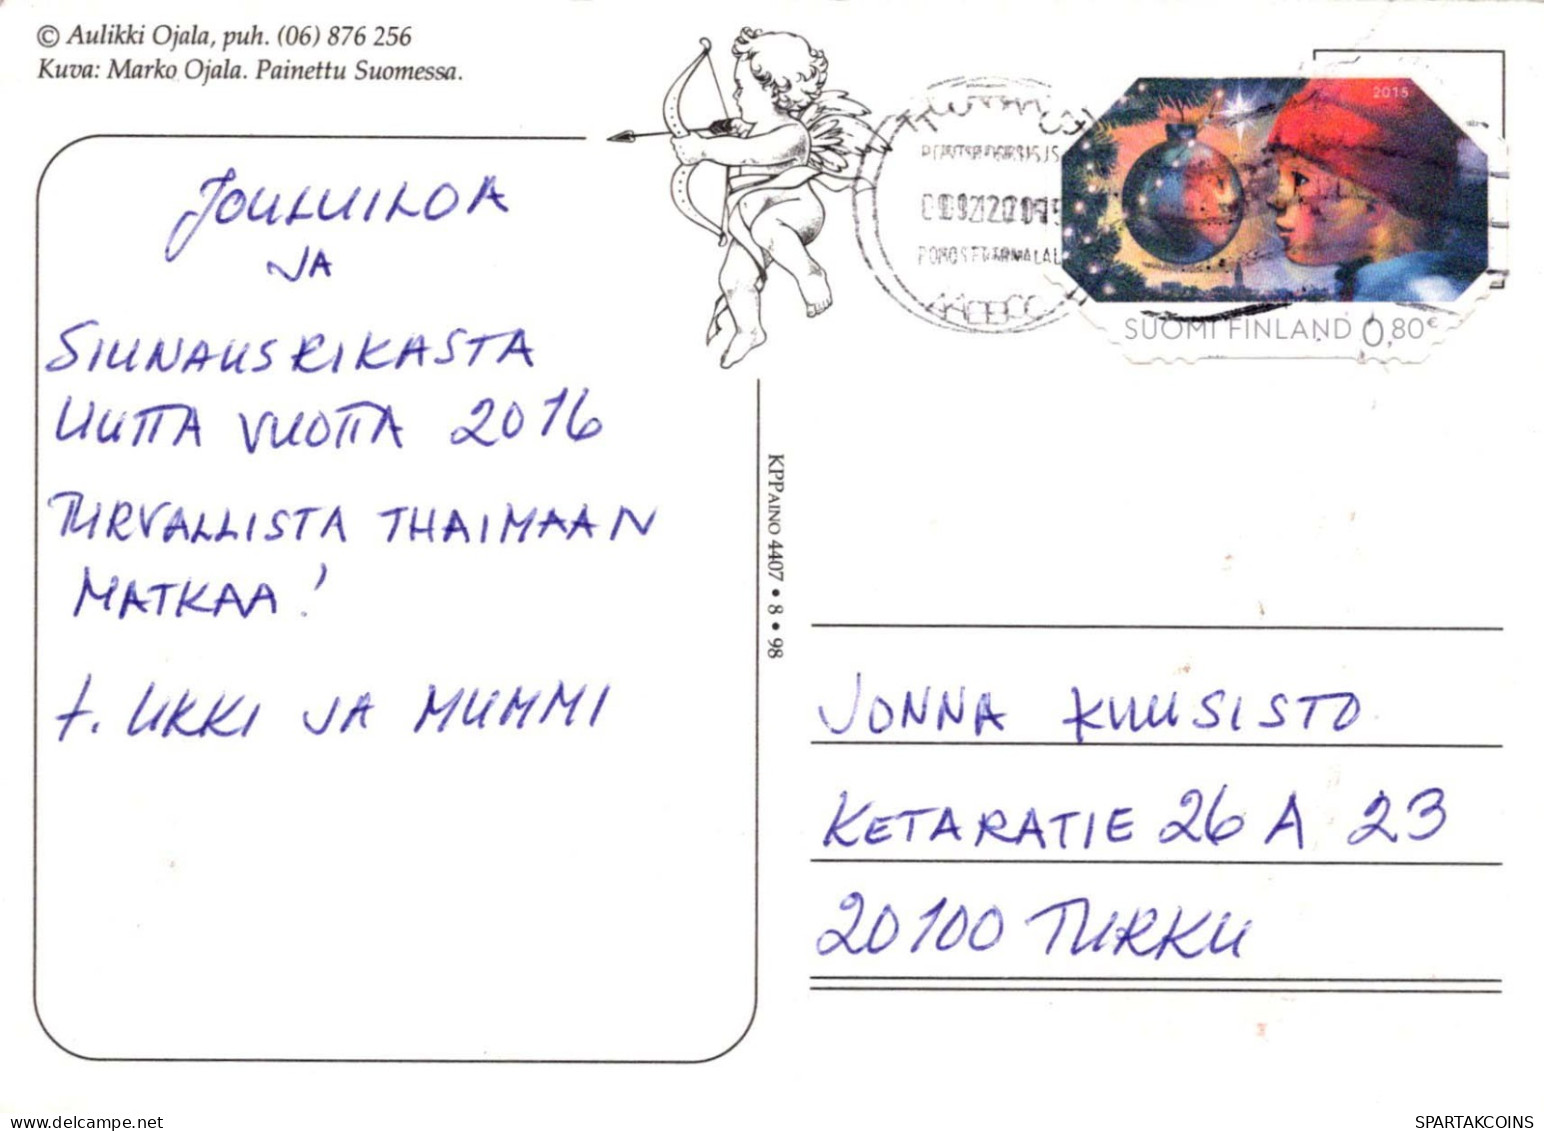 © Aulikki Ojala, puh. (06) 876 256
Kuva: Marko Ojala. Painettu Suomessa.
JOULUILOA
JA
SIUNAUSRIKASTA
UUTTA VUOTTA 2016
TURVALLISTA THAIMAAN
MATKAA!
T. UKKI JA MUMMI
KPP AINO 4407 • 8 • 98
2015
SUOMI FINLAND 0,80€
JONNA KUUSISTO
KETARATIE 26 A 23
20100 TURKU
delcampe.net
SPARTAKCOINS